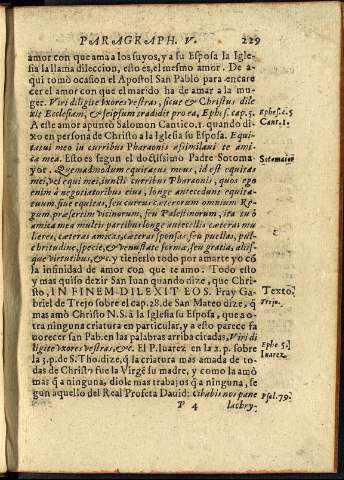 PARAGRAPH. V. 229
amor con que ama a los suyos, y a su Esposa la Igle-
sia la llama dileccion, esto es, el mesmo amor. De a-
qui tomò ocasion el Apostol San Pablo para encare
cer el amor con que el marido ha de amar a la mu-
ger. Viri diligite vxores vestras, sicut & Christus dile
xit Ecclesiam, & seipsum tradidit pro ea, Ephes. cap. 5.
Ephes. c. 5
A este amor apuntò Salomon Cantico. 1. quando di-
Cant. 1.
xo en persona de Christo a la Iglesia su Esposa. Equi
tatui meo in curribus Pharaonis assimilaui te ami
ca mea. Esto es segun el doctissimo Padre Sotoma
Sotomaior
yor. Quemadmodum equitatus meus, id est equitas
mei, vel equi mei, iuncti curribus Pharaonis, quos ego
enim a negotiatoribus eius, longe antecedunt equita-
tuum siue equitas, seu currus cæterorum omnium Re-
gum, præsertim vicinorum, seu Palestinorum, ita tu ò
amica mea multis partibus longe antecellis cæteras mu
lieres, cæteras amicas, cæteras sponsas, seu puellas, pul-
chritudine, specie, & venustate forma, seu gratia, alijs-
que virtutibus, &c. y tienerlo todo por amarte yo cō
la infinidad de amor con que te amo. Todo esto
y mas quiso dezir San Iuan quando dize, que Chri-
sto, IN FINEM DILEXIT EOS. Fray Ga-
Texto.
briel de Trejo sobre el cap. 28. de San Mateo dize, q̄
Trejo.
mas amò Christo N.S. à la Iglesia su Esposa, que a o-
tra ninguna criatura en particular, y a esto parece fa
norecer san Pab. en las palabras arriba citadas, Viri di
ligite vxores vestras, &c. El P. Iuarez en la 2. p. sobre
Ephe. 5.
Iuarez
la 3. p. de S. Tho. dize, q̄ la criatura mas amada de to-
das de Christo fue la Virgē su madre, y como la amò
mas q̄ a ninguna, diole mas trabajos q̄ a ninguna, se
gun aquello del Real Profeta Dauid: cibabis nos pane
Psal. 79.
P 4 lachry-